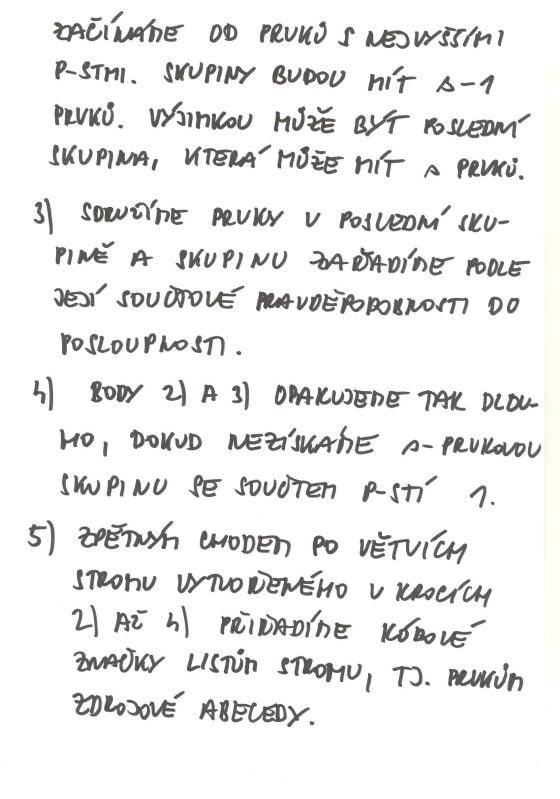 ZAČÍNÁME OD PRVKŮ S NEJVYŠŠÍMI
P-STMI. SKUPINY BUDOU MÍT Δ-1
PRVKŮ. VÝJIMKOU MŮŽE BÝT POSLEDNÍ
SKUPINA, KTERÁ MŮŽE MÍT Δ PRVKŮ.
3) SDRUŽÍME PRVKY V POSLEDNÍ SKU-
PINĚ A SKUPINU ZAŘADÍME PODLE
JEJÍ SOUČTOVÉ PRAVDĚPODOBNOSTI DO
POSLOUPNOSTI.
4) BODY 2) A 3) OPAKUJEME TAK DLOU-
HO, DOKUD NEZÍSKÁME Δ-PRVKOVOU
SKUPINU SE SOUČTEM P-STÍ 1.
5) ZPĚTNÝM CHODEM PO VĚTVÍCH
STROMU VYTVOŘENÉHO V KROCÍCH
2) AŽ 4) PŘIŘADÍME KÓDOVÉ
ZNAČKY LISTŮM STROMU, TJ. PRVKŮM
ZDROJOVÉ ABECEDY.